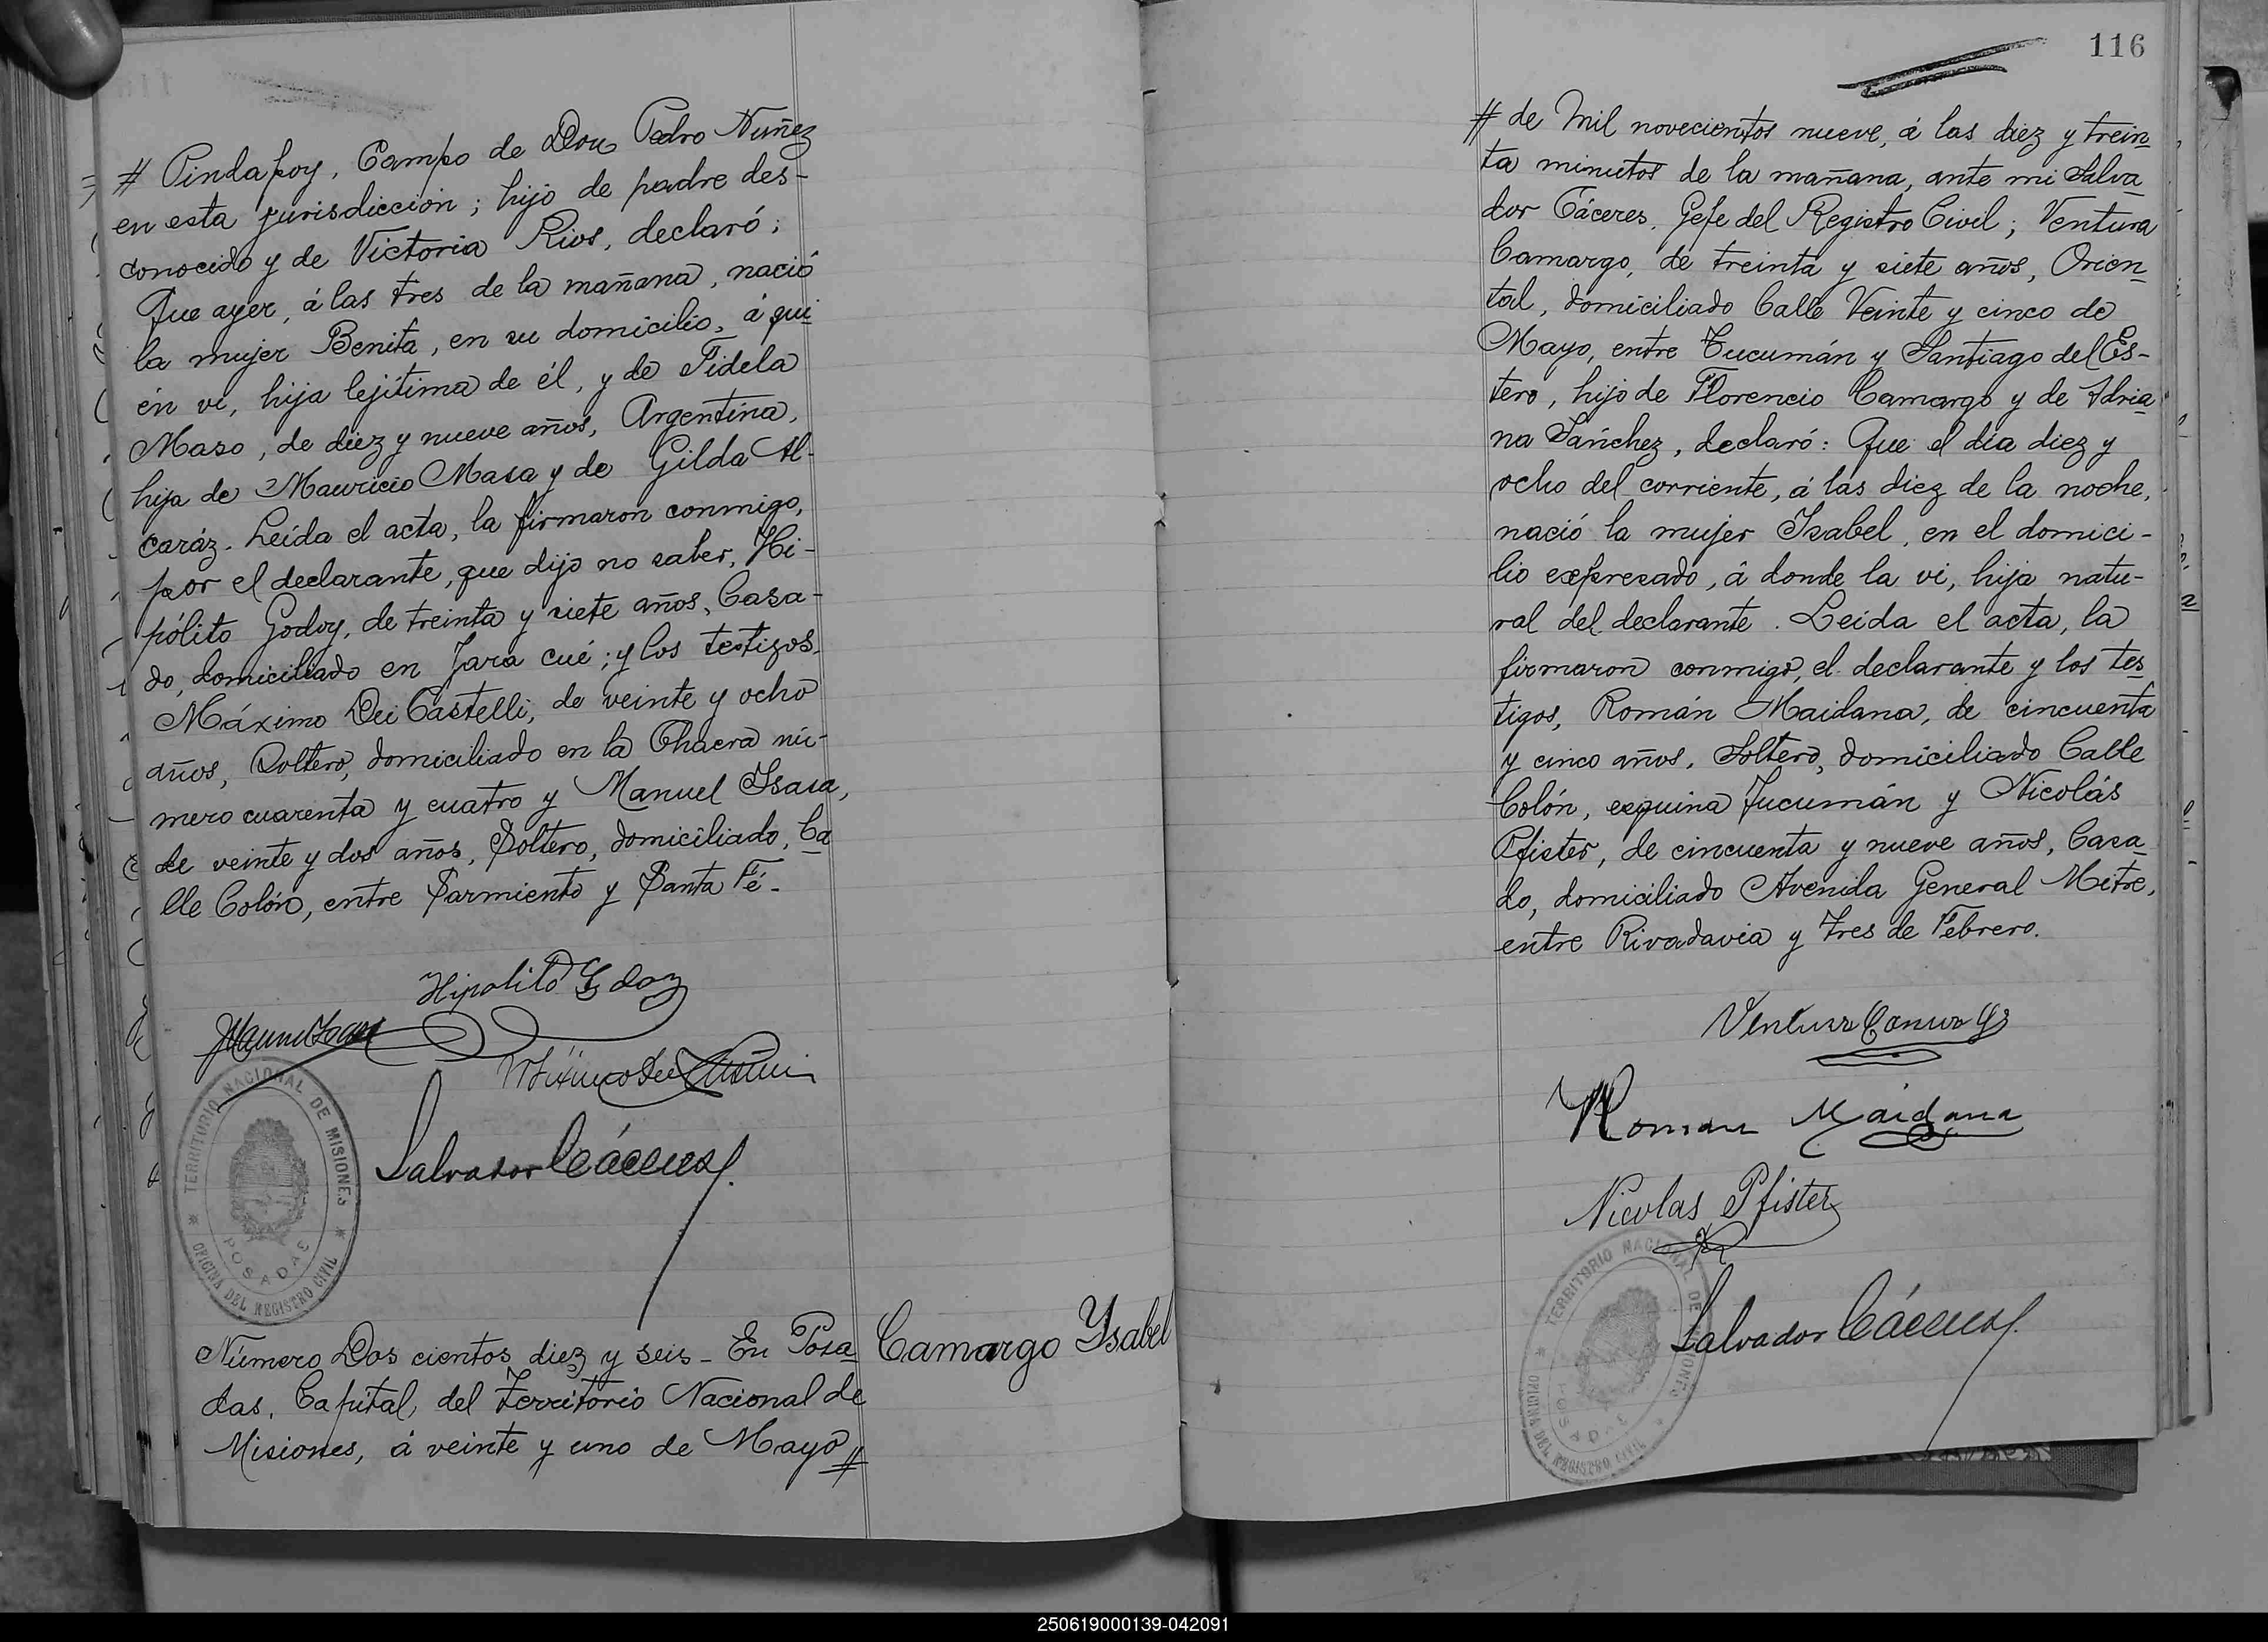 # Pindapoy, Campo de Don Pedro Nuñez
en esta jurisdicción; hijo de padre des-
conocido y de Victoria Rios, declaró;
Que ayer, á las tres de la mañana, nació
la mujer Benita, en su domicilio, á qui
én vi, hija lejítima de él, y de Fidela
Maso, de diez y nueve años, Argentina,
hija de Mauricio Masa y de Gilda Al-
caráz. Leída el acta, la firmaron conmigo,
por el declarante, que dijo no saber, Hi-
pólito Godoy, de treinta y siete años, Casa-
do, domiciliado en Jara cué; y los testigos.
Máximo Dei Castelli, de veinte y ocho
años, Soltero, domiciliado en la Chacra nú-
mero cuarenta y cuatro y Manuel Isasa,
de veinte y dos años, Soltero, domiciliado, Ca
lle Colón, entre Sarmiento y Santa Fé.
Hipolito Godoy
Salvador Cáceres
TERRITORIO NACIONAL DE MISIONES
POSADAS
OFICINA DEL REGISTRO CIVIL
Número Dos cientos diez y seis - En Posa
Camargo Ysabel
das, Capital, del Territorio Nacional de
Misiones, á veinte y uno de Mayo #
116
# de Mil novecientos nueve, á las diez y trein
ta minutos de la mañana, ante mi Salva
dor Cáceres, Gefe del Registro Civil; Ventura
Camargo, de treinta y siete años, Orien
tal, domiciliado Calle Veinte y cinco de
Mayo, entre Tucumán y Santiago del Es-
tero, hijo de Florencio Camargo y de Adria
na Sánchez, declaró: Que el día diez y
ocho del corriente, á las diez de la noche,
nació la mujer Isabel, en el domici-
lio expresado, á donde la vi, hija natu-
ral del declarante. Leída el acta, la
firmaron conmigo, el declarante y los tes
tigos, Román Maidana, de cincuenta
y cinco años, Soltero, domiciliado Calle
Colón, esquina Tucumán y Nicolás
Pfister, de cincuenta y nueve años, Casa
do, domiciliado Avenida General Mitre,
entre Rivadavia y Tres de Febrero.
Ventura Camargo
Roman Maidana
Nicolas Pfister
TERRITORIO NACIONAL DE MISIONES
POSADAS
OFICINA DEL REGISTRO CIVIL
Salvador Cáceres
250619000139-042091